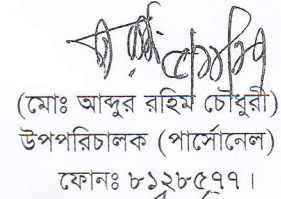 (মোঃ আব্দুর রহিম চৌধুরী)
উপপরিচালক (পার্সোনেল)
ফোনঃ ৮১২৮৫৭৭।